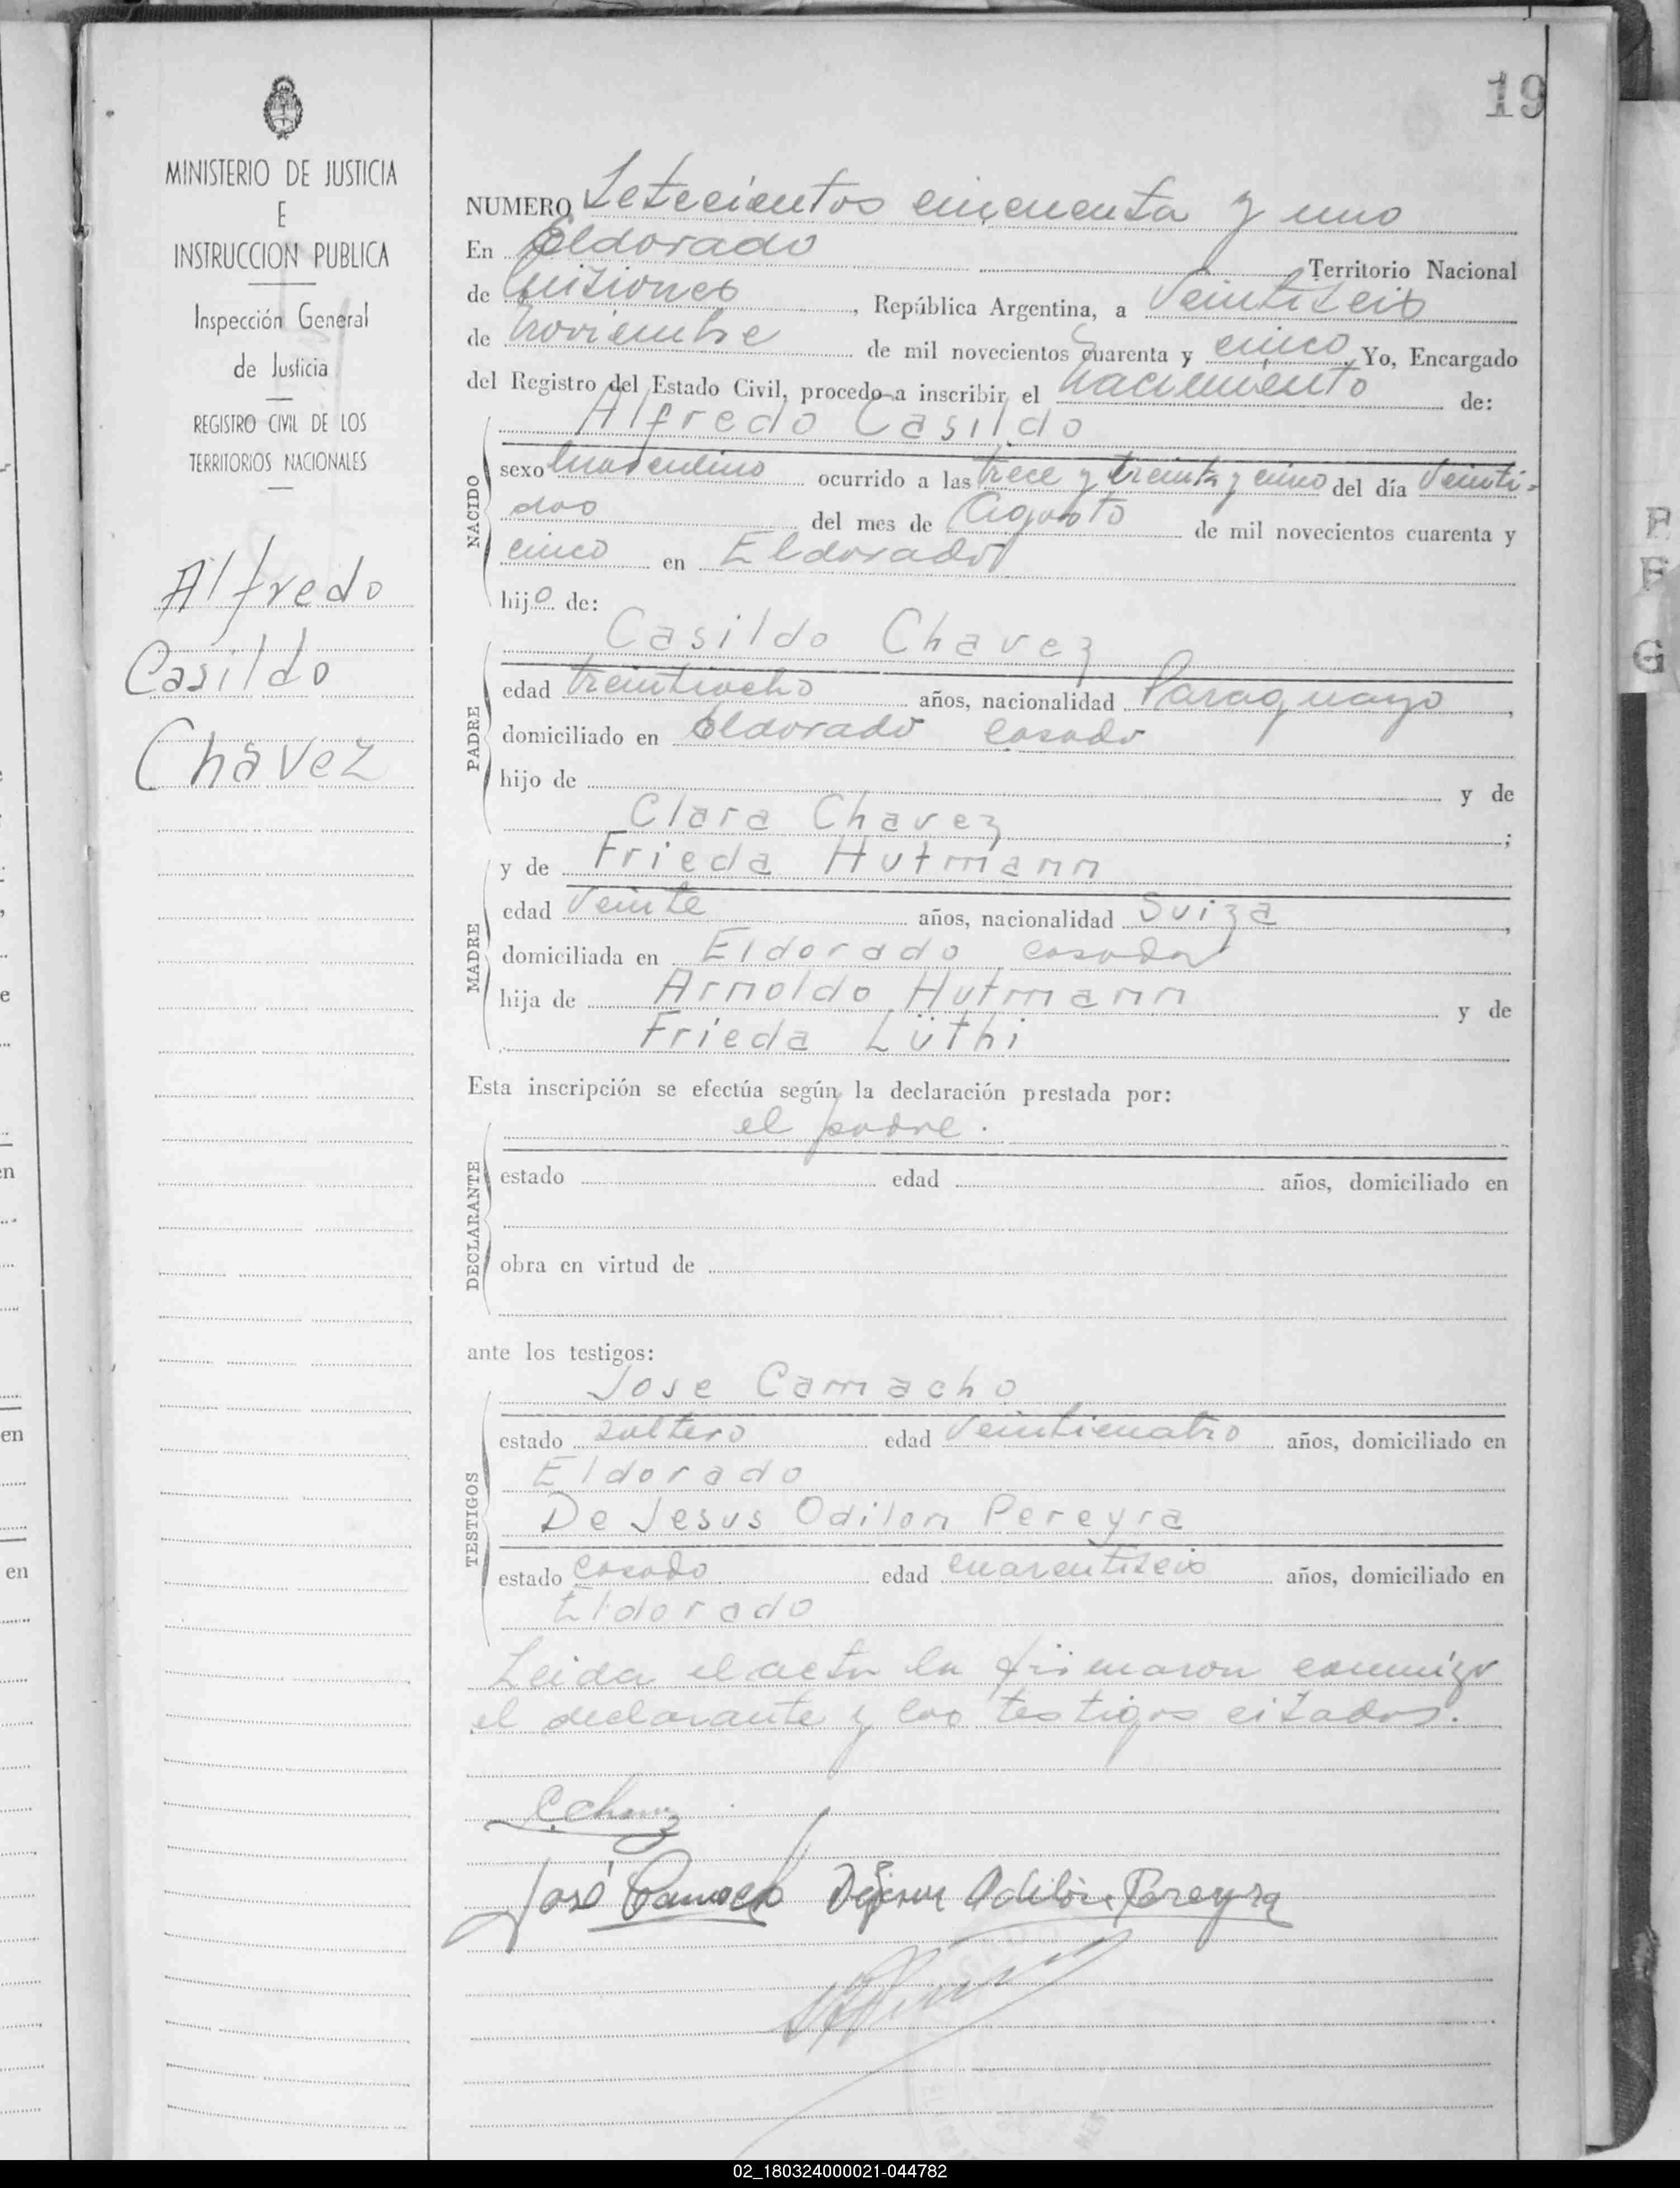 19
MINISTERIO DE JUSTICIA
E
INSTRUCCION PUBLICA
Inspección General
de Justicia
REGISTRO CIVIL DE LOS
TERRITORIOS NACIONALES
Alfredo
Casildo
Chavez
NUMERO Setecientos cincuenta y uno
En Eldorado Territorio Nacional
de Misiones, República Argentina, a Veintiseis
de noviembre de mil novecientos cuarenta y cinco Yo, Encargado
del Registro del Estado Civil, procedo a inscribir el nacimiento de:
NACIDO
Alfredo Casildo
sexo masculino ocurrido a las trece y treinta y cinco del día Veinti-
dos del mes de Agosto de mil novecientos cuarenta y
cinco en Eldorado
hijo de:
PADRE
Casildo Chavez
edad treintiocho años, nacionalidad Paraguayo,
domiciliado en Eldorado casado
hijo de y de
Clara Chavez;
MADRE
y de Frieda Hutmann
edad Veinte años, nacionalidad Suiza,
domiciliada en Eldorado casada
hija de Arnoldo Hutmann y de
Frieda Lüthi
Esta inscripción se efectúa según la declaración prestada por:
DECLARANTE
el padre.
estado edad años, domiciliado en
obra en virtud de
ante los testigos:
TESTIGOS
Jose Camacho
estado soltero edad Veinticuatro años, domiciliado en
Eldorado
De Jesus Odilon Pereyra
estado casado edad cuarentiseis años, domiciliado en
Eldorado
Leida el acta la firmaron conmigo
el declarante y los testigos citados.
C. Chavez
José Camacho Dejesus Odilon Pereyra
E
F
G
en
en
en
02_180324000021-044782